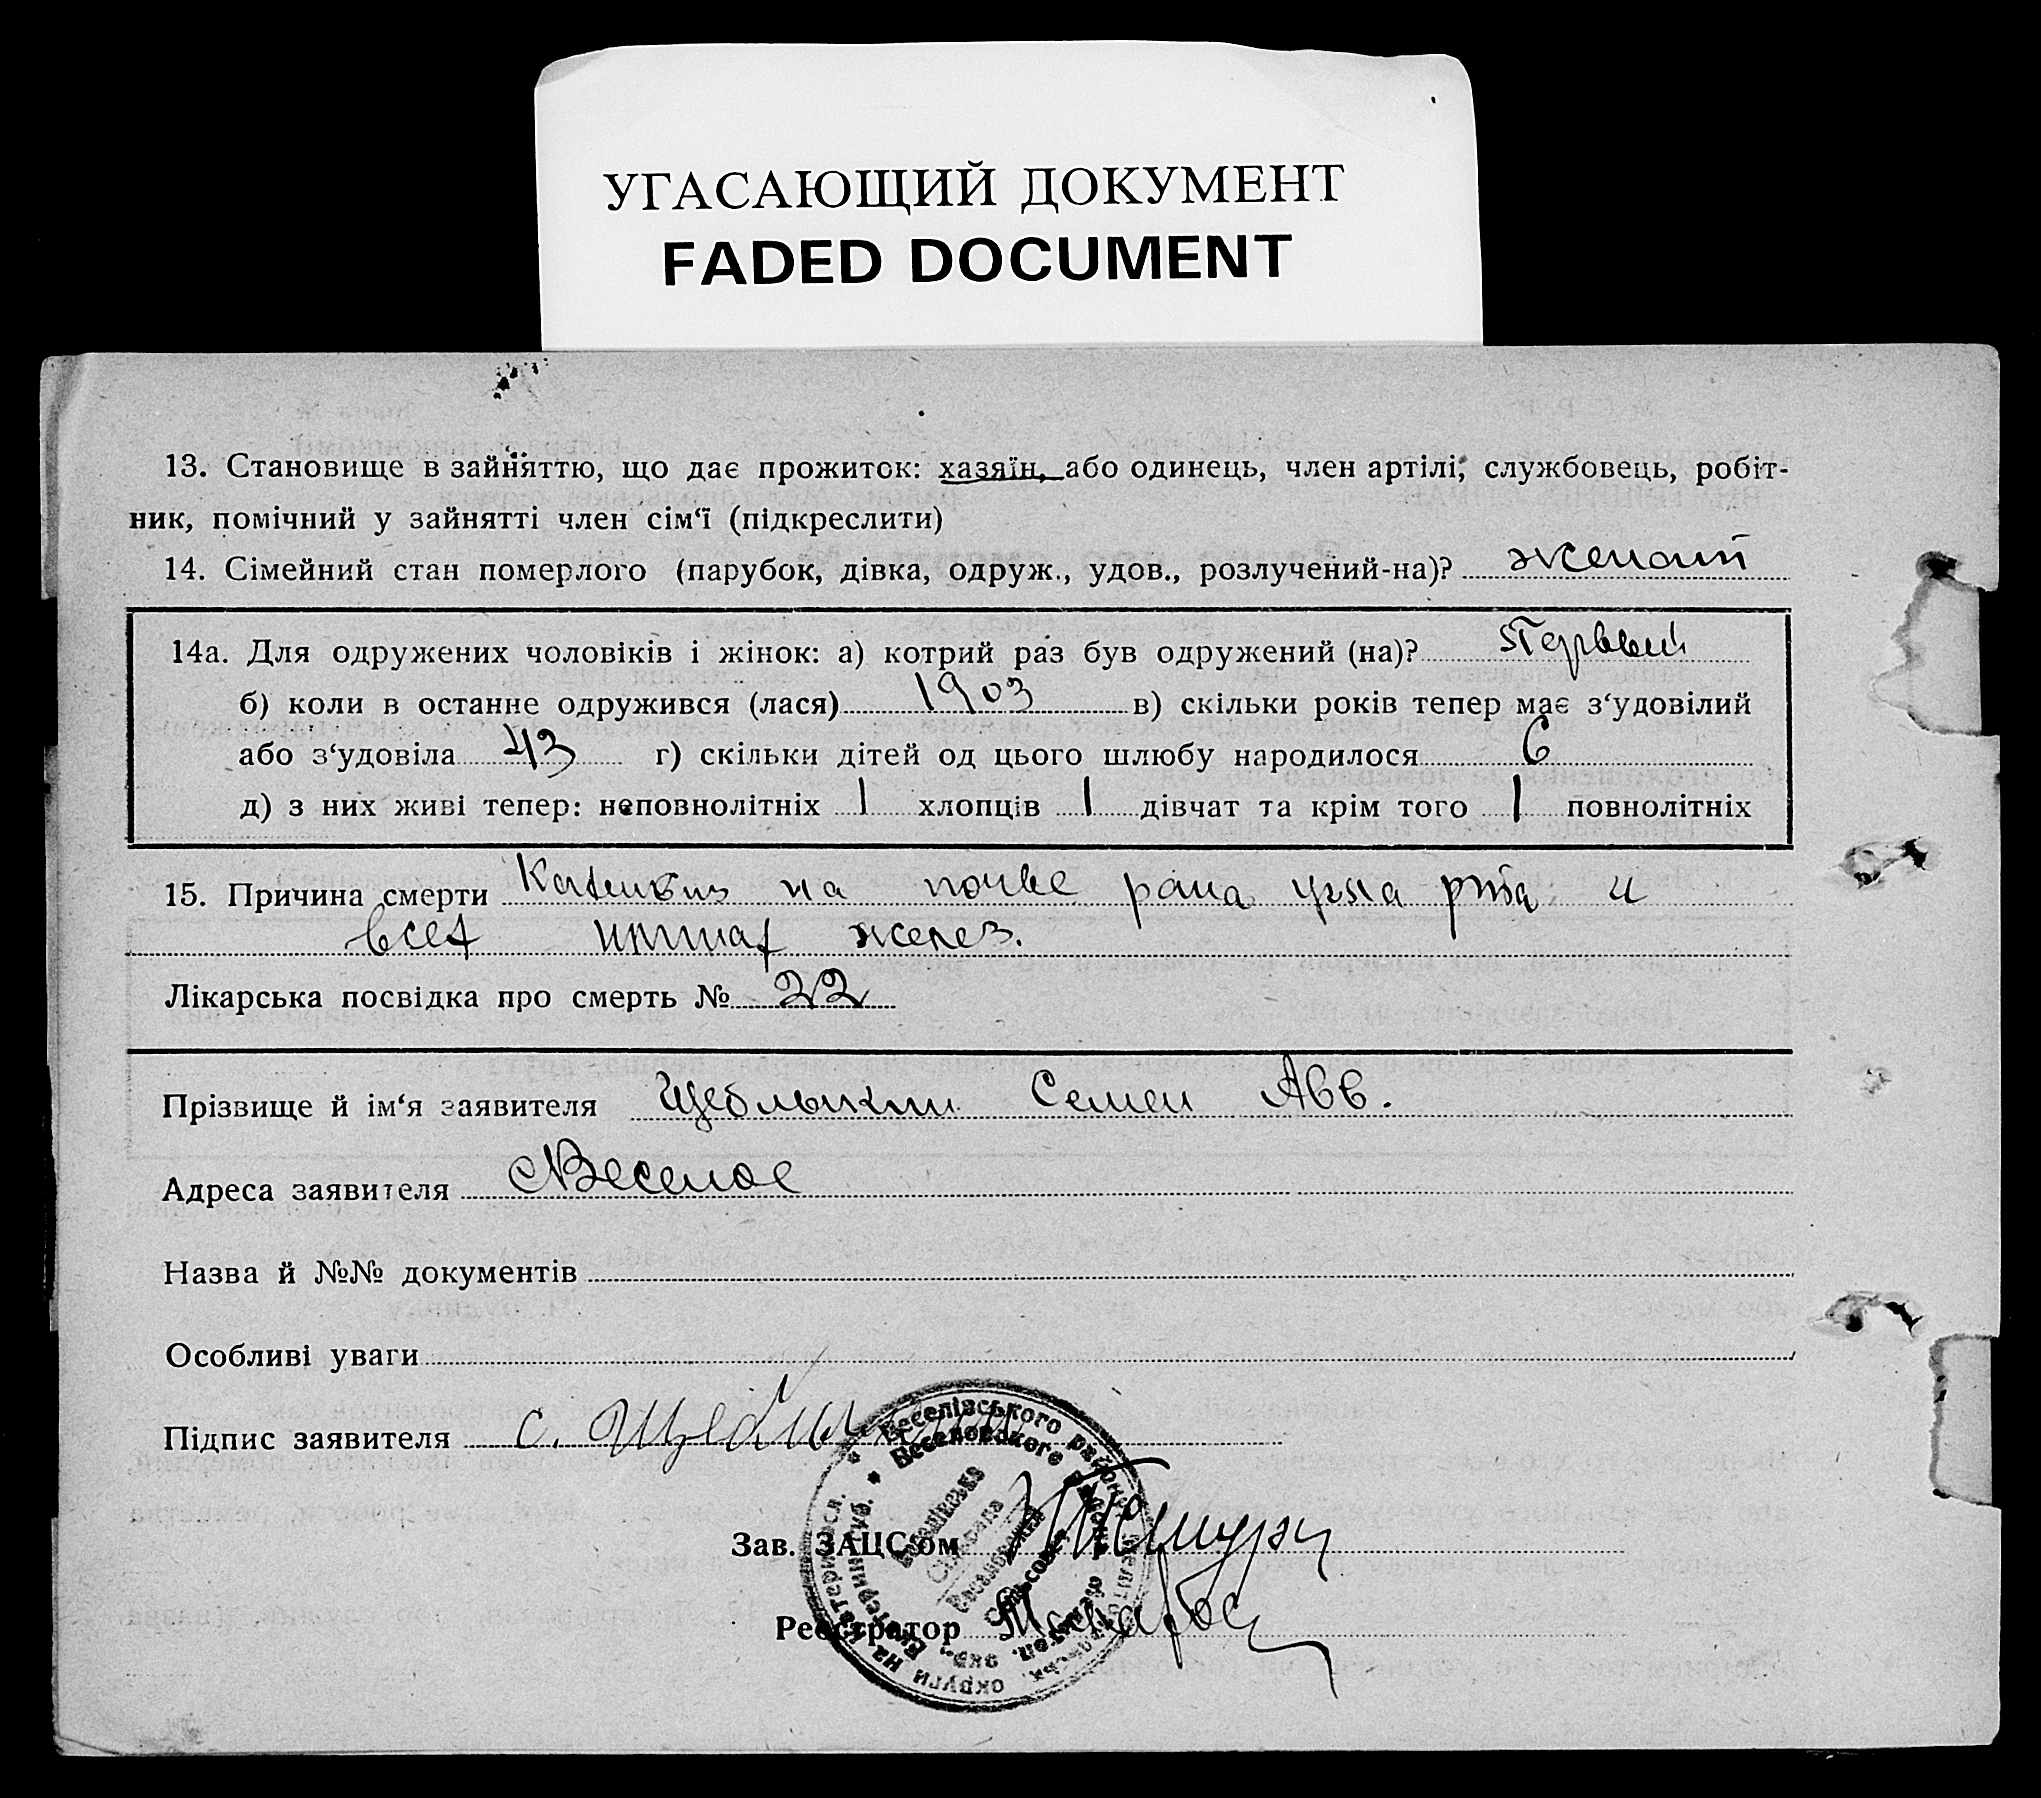 УГАСАЮЩИЙ ДОКУМЕНТ
FADED DOCUMENT
13. Становище в зайняттю, що дає прожиток: хазяїн, або одинець, член артілі, службовець, робіт-
ник, помічний у зайнятті член сім‘ї (підкреслити)
14. Сімейний стан померлого (парубок, дівка, одруж., удов., розлучений-на)? женат
14а. Для одружених чоловіків і жінок: а) котрий раз був одружений (на)? Первый
б) коли в останнє одружився (лася) 1903 в) скільки років тепер має з‘удовілий
або з‘удовіла 43 г) скільки дітей од цього шлюбу народилося 6
д) з них живі тепер: неповнолітніх 1 хлопців 1 дівчат та крім того 1 повнолітніх
15. Причина смерти на почве рака угла рта и
всех желез.
Лікарська посвідка про смерть № 22
Прізвище й ім‘я заявителя Семен Авв.
Адреса заявителя с Веселое
Назва й №№ документів
Особливі уваги
Підпис заявителя с.
Веселівського району
Веселовского
Зав. ЗАЦС‘ом
Реєстратор